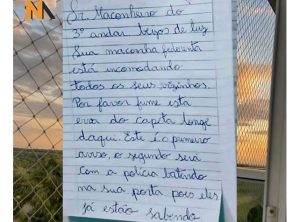 N
Sr. Maconheiro do
3º andar braços de luz
Sua maconha fedorenta
está incomodando
todos os seus vizinhos.
Por favor fume esta
erva do capeta longe
daqui. Este é o primeiro
aviso, o segundo será
com a polícia batendo
na sua porta pois eles
já estão sabendo